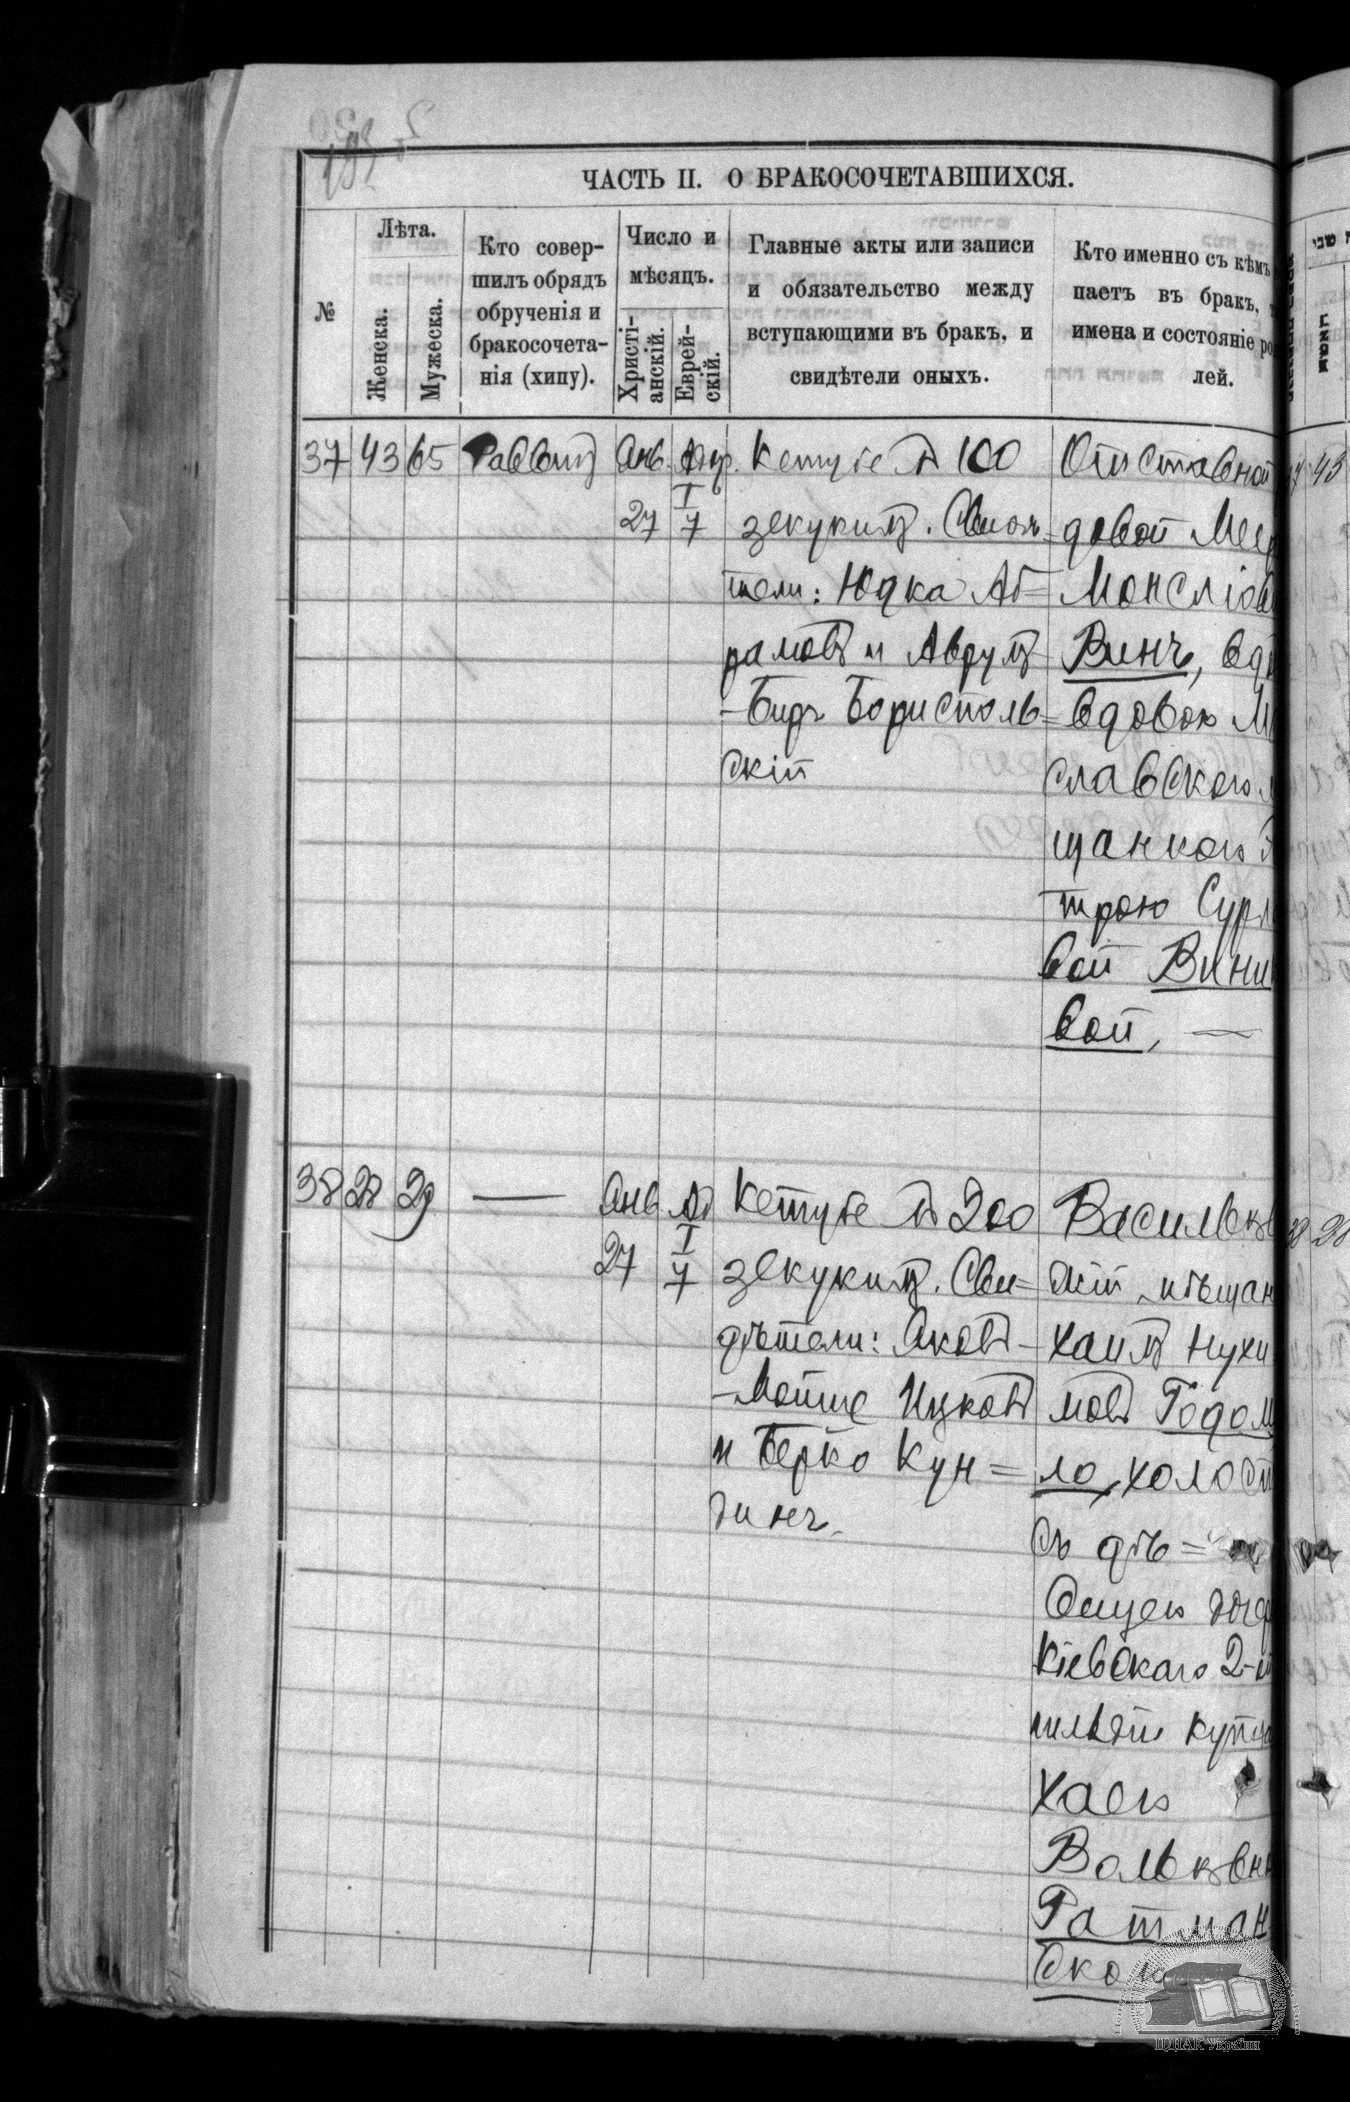 ЧАСТЬ II. О БРАКОСОЧЕТАВШИХСЯ.
№
Лѣта.
Женска.
Мужеска.
Кто совер-
шилъ обрядъ
обрученія и
бракосочета-
нія (хипу).
Число и
мѣсяцъ.
Христі-
анскій.
Еврей-
скій.
Главные акты или записи
и обязательство между
вступающими въ бракъ, и
свидѣтели оныхъ.
Кто именно съ кѣмъ
паетъ въ бракъ,
имена и состояніе ро
лей.
37 43 65 Раввинъ Янв.
27 I/7
Кетубе въ 100
зекукимъ. Свидѣ=
тели: Юдка Аб=
рамовъ и Аврумъ-
-Беръ Борисполь=
скій
Отставной
довой Меер
Монсліов
Винъ, вдо
вдовою М
славскою
щанкою
трою Сурл
вой Вини
вой, —
38 28 29 — Янв.
27 I/7
Кетубе въ 200
зекукимъ. Сви=
дѣтели: Яковъ-
-Мойше Ицковъ
и Берко Кун=
динъ.
Васильков
скій мѣщан
Хаимъ Нухи
мовъ Годом
ло, холост
съ дѣ=
Кіевскаго 2-й
гильдіи купц
Хаею
Вольковн
Ратман
скою
38 28
ЦДІАК України